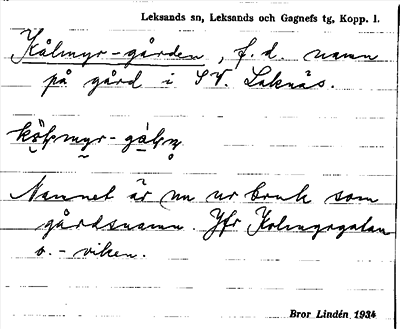 Leksands sn, Leksands och Gagnefs tg, Kopp. l.
Kålmyr-gården, f.d. namn
på gård i S.V. Laknäs.
Namnet är nu ur bruk som
gårdsnamn. Jfr Kolmyrgatan
o. -viken.
Bror Lindén 1934